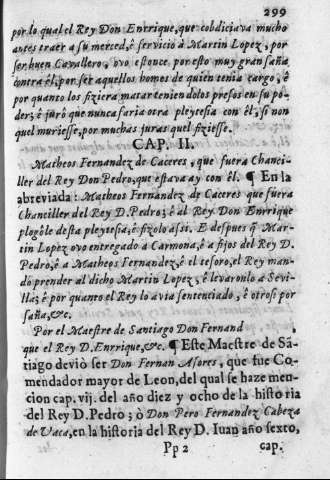 299
por lo qual el Rey Don Enrrique, que cobdiciava mucho
antes traer a su merced, è servicio à Martin Lopez, por
ser buen Cavallero, ovo estonce por esto muy gran saña
contra èl, por ser aquellos homes de quien tenia cargo, è
por quanto los fiziera matar tenien dolos presos en su po-
der; è jurò que nunca faria otra pleytesia con èl, si non
quel muriesse, por muchas juras quel fiziesse.
CAP. II.
Matheos Fernandez de Caceres, que fuera Chanci-
ller del Rey Don Pedro, que estava ay con èl. ¶ En la
abreviada: Matheos Fernandez de Caceres que fuera
Chanciller del Rey D. Pedro; è al Rey Don Enrrique
plogòle desta pleytesia; è fizolo assi. E despues q̃ Mar-
tin Lopez ovo entregado a Carmona, è a fijos del Rey D.
Pedro, è a Matheos Fernandez, è el tesoro, el Rey man-
dò prender al dicho Martin Lopez, è levaronlo a Sevi-
lla; è por quanto el Rey lo avia sentenciado, è otrosi por
saña, &c.
Por el Maestre de Santiago Don Fernand
que el Rey D. Enrrique, &c. ¶ Este Maestre de Sã-
tiago deviò ser Don Fernan Asores, que fue Co-
mendador mayor de Leon, del qual se haze men-
cion cap. vij. del año diez y ocho de la historia
del Rey D. Pedro; ò Don Pero Fernandez Cabeza
de Vaca, en la historia del Rey D. Iuan año sexto,
Pp 2 cap.